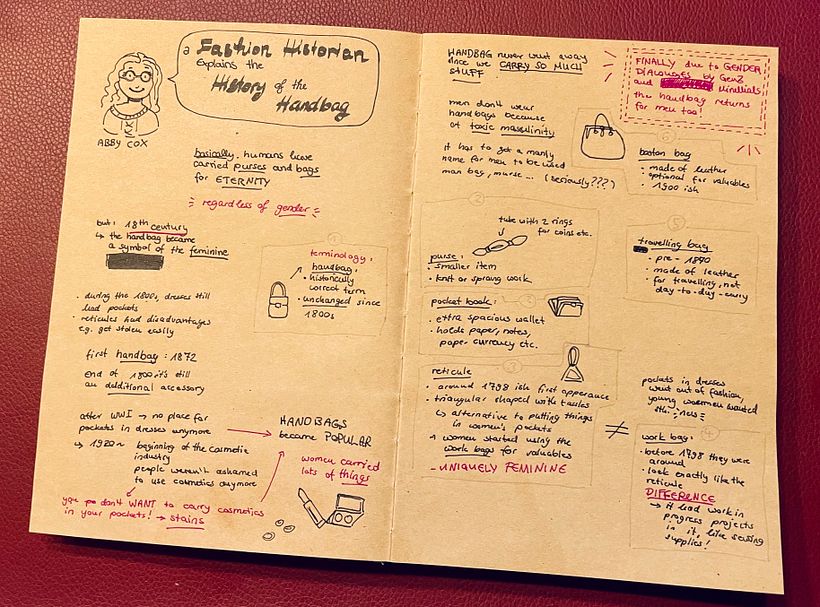 a Fashion Historian
Explains the
History of the
Handbag
ABBY COX
basically, humans have
carried purses and bags
for ETERNITY
regardless of gender
but: 18th century
↳ the handbag became
a symbol of the feminine
1
terminology:
handbag:
• historically
correct term
• unchanged since
1800s
• during the 1800s, dresses still
had pockets
• reticules had disadvantages
e.g. get stolen easily
first handbag: 1872
end of 1800 it's still
an additional accessory
after WWI → no place for
pockets in dresses anymore
→
HANDBAGS
became POPULAR
↳ 1920~ beginning of the cosmetic
industry
people weren't ashamed
to use cosmetics anymore
women carried
lots of things
you do don't WANT to carry cosmetics
in your pockets! → stains
HANDBAG never went away
since we CARRY SO MUCH
STUFF
men don't wear
handbags because
of toxic masculinity
it has to get a manly
name for men to be used
man bag, murse... (seriously???)
FINALLY due to GENDER
DIALOUGES by GenZ
and Minllials
the handbag returns
for men too!
6
boston bag
• made of leather
optional for valuables
• 1900 ish
2
tube with 2 rings
for coins etc.
purse:
• smaller item
• knit or sprang work
5
travelling bag
• pre - 1890
• made of leather
• for travelling, not
day-to-day-carry
pocket book:
• extra spacious wallet
• holds paper, notes,
paper currency etc.
3
reticule
• around 1798 ish first apperance
• triangular shaped with tassles
↳ alternative to putting things
in women's pockets
• women started using the
work bags for valuables
- UNIQUELY FEMININE
pockets in dresses
went out of fashion,
young woemen wanted
≠
4
work bag:
• before 1798 they were
around
• look exactly like the
reticule
DIFFERENCE
→ it had work in
progress projects
in it, like sewing
supplies!